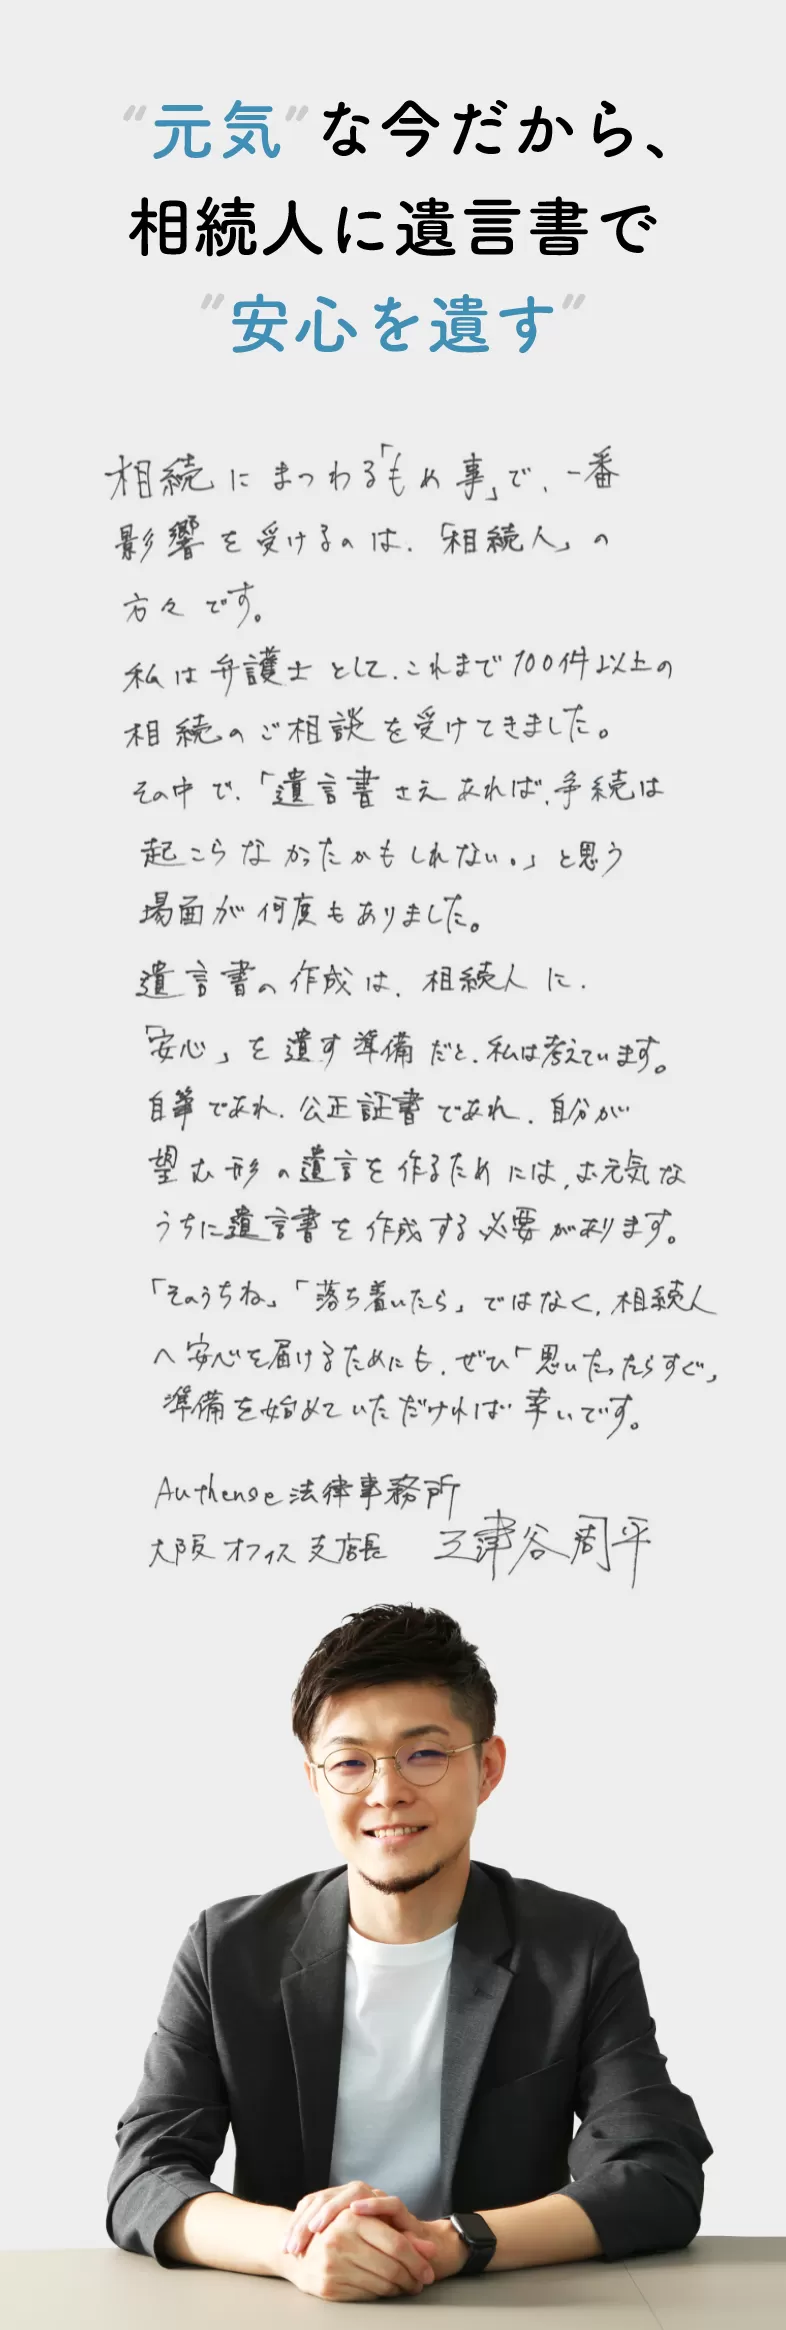 "元気"な今だから、
相続人に遺言書で
"安心を遺す"
相続にまつわる「もめ事」で、一番
影響を受けるのは、「相続人」の
方々です。
私は弁護士として、これまで100件以上の
相続のご相談を受けてきました。
その中で、「遺言書さえあれば、争続は
起こらなかったかもしれない。」と思う
場面が何度もありました。
遺言書の作成は、相続人に、
「安心」を遺す準備だと、私は考えています。
自筆であれ、公正証書であれ、自分が
望む形の遺言を作るためには、お元気な
うちに遺言書を作成する必要があります。
「そのうちね」「落ち着いたら」ではなく、相続人
へ安心を届けるためにも、ぜひ「思いたったらすぐ」
準備を始めていただければ幸いです。
Authense法律事務所
大阪オフィス支店長 三津谷周平